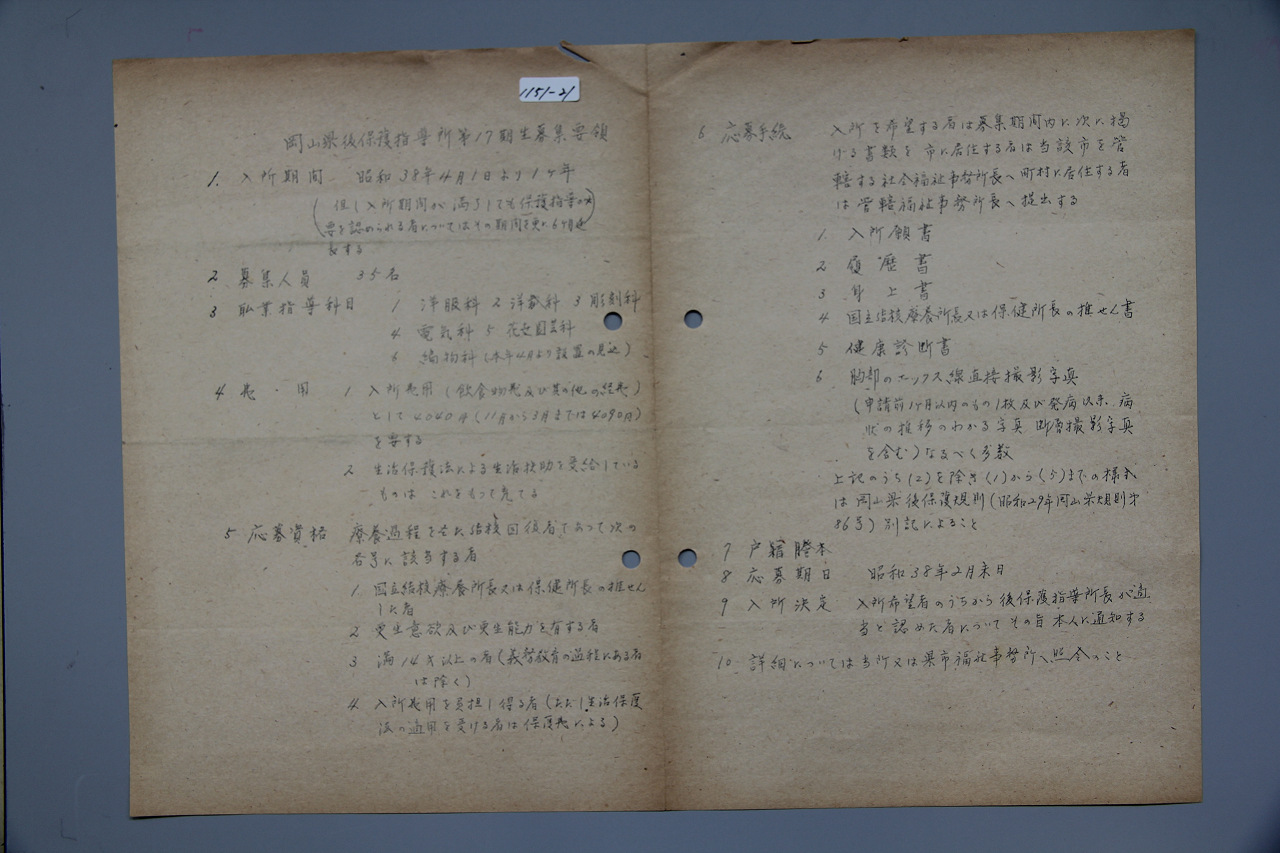 1151-21
岡山県後保護指導所第17期生募集要領
1. 入所期間 昭和38年4月1日より1ヶ年
(但し入所期間が満ちても保護指導の必
要を認められる者についてはその期間を更に6ヶ月延
長する
2 募集人員 35名
3 職業指導科目 1 洋服科 2 洋裁科 3 彫刻科
4 電気科 5 花卉園芸科
6 編物科(本年4月より設置の見込)
4 費・用 1 入所費用(飲食物費及び其の他の経費)
として4040円(11月から3月までは4090円)
を要する
2 生活保護法による生活扶助を受給している
ものは これをもって充てる
5 応募資格 療養過程を存た結核回復者であって次の
各号に該当する者
1 国立結核療養所長又は保健所長の推せん
した者
2 更生意欲及び更生能力を有する者
3 満14才以上の者(義務教育の過程にある者
は除く)
4 入所費用を負担し得る者(ただし生活保護
法の適用を受ける者は保護費による)
6 応募手続 入所を希望する者は募集期間内に次に掲
げる書類を 市に居住する者は当該市を管
轄する社会福祉事務所長へ 町村に居住する者
は管轄福祉事務所長へ提出する
1. 入所願書
2 履歴書
3 身上書
4 国立結核療養所長又は保健所長の推せん書
5 健康診断書
6 胸部のエックス線直接撮影写真
(申請前1ヶ月以内のもの1枚及び発病以来、病
状の推移のわかる写真 断層撮影写真
を含む)なるべく多数
上記のうち(2)を除き(1)から(5)までの様式
は岡山県後保護規則(昭和29年岡山県規則第
86号)別記によること
7 戸籍謄本
8 応募期日 昭和38年2月末日
9 入所決定 入所希望者のうちから後保護指導所長が適
当と認めた者について その旨本人に通知する
10 詳細については当所又は県市福祉事務所へ照会のこと